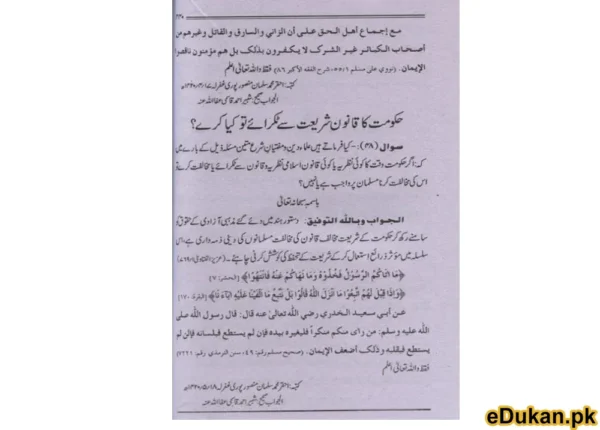 مع إجماع أهل الحق على أن الزاني والسارق والقاتل وغيرهم من
أصحاب الكبائر غير الشرك لا يكفرون بذلك بل هم مؤمنون ناقصوا
الإيمان. (نووي على مسلم ٥٥/١، شرح الفقه الأكبر ٨٦) فقط واللہ تعالیٰ اعلم
کتبہ: احقر محمد سلمان منصور پوری غفرلہ
الجواب صحیح: شبیر احمد قاسمی عفا اللہ عنہ
حکومت کا قانون شریعت سے ٹکرائے تو کیا کرے؟
سوال (۳۸):- کیا فرماتے ہیں علماء دین و مفتیان شرع متین مسئلہ ذیل کے بارے میں
کہ: اگر حکومت وقت کا کوئی نظریہ یا کوئی قانون اسلامی نظریہ و قانون سے ٹکرائے یا مخالفت کرے
اس کی مخالفت کرنا مسلمان پر واجب ہے یا نہیں؟
باسمہ سبحانہ تعالیٰ
الجواب وباللہ التوفیق: دستور ہند میں دئے گئے مذہبی آزادی کے حقوق کو
سامنے رکھ کر حکومت کے شریعت مخالف قانون کی مخالفت مسلمانوں کی دینی ذمہ داری ہے، اس
سلسلہ میں مؤثر ذرائع استعمال کر کے شریعت کے تحفظ کی کوشش کرنی چاہئے۔ (عزیز الفتاویٰ
﴿مَا اٰتَاكُمُ الرَّسُوْلُ فَخُذُوْهُ وَمَا نَهَاكُمْ عَنْهُ فَانْتَهُوْا﴾ [الحشر: ٧]
﴿وَاِذَا قِيْلَ لَهُمُ اتَّبِعُوْا مَا اَنْزَلَ اللّٰهُ قَالُوْا بَلْ نَتَّبِعُ مَا اَلْفَيْنَا عَلَيْهِ اٰبَآءَنَا﴾ [البقرة: ١٧٠]
عن أبي سعيد الخدري رضي الله تعالى عنه قال: قال رسول الله صلى
الله عليه وسلم: من رأى منكم منكراً فليغيره بيده فإن لم يستطع فبلسانه فإن لم
يستطع فبقلبه وذلك أضعف الإيمان. (صحيح مسلم رقم: ٤٩، سنن الترمذي رقم:
فقط واللہ تعالیٰ اعلم
کتبہ: احقر محمد سلمان منصور پوری غفرلہ
الجواب صحیح: شبیر احمد قاسمی عفا اللہ عنہ
eDukan.pk